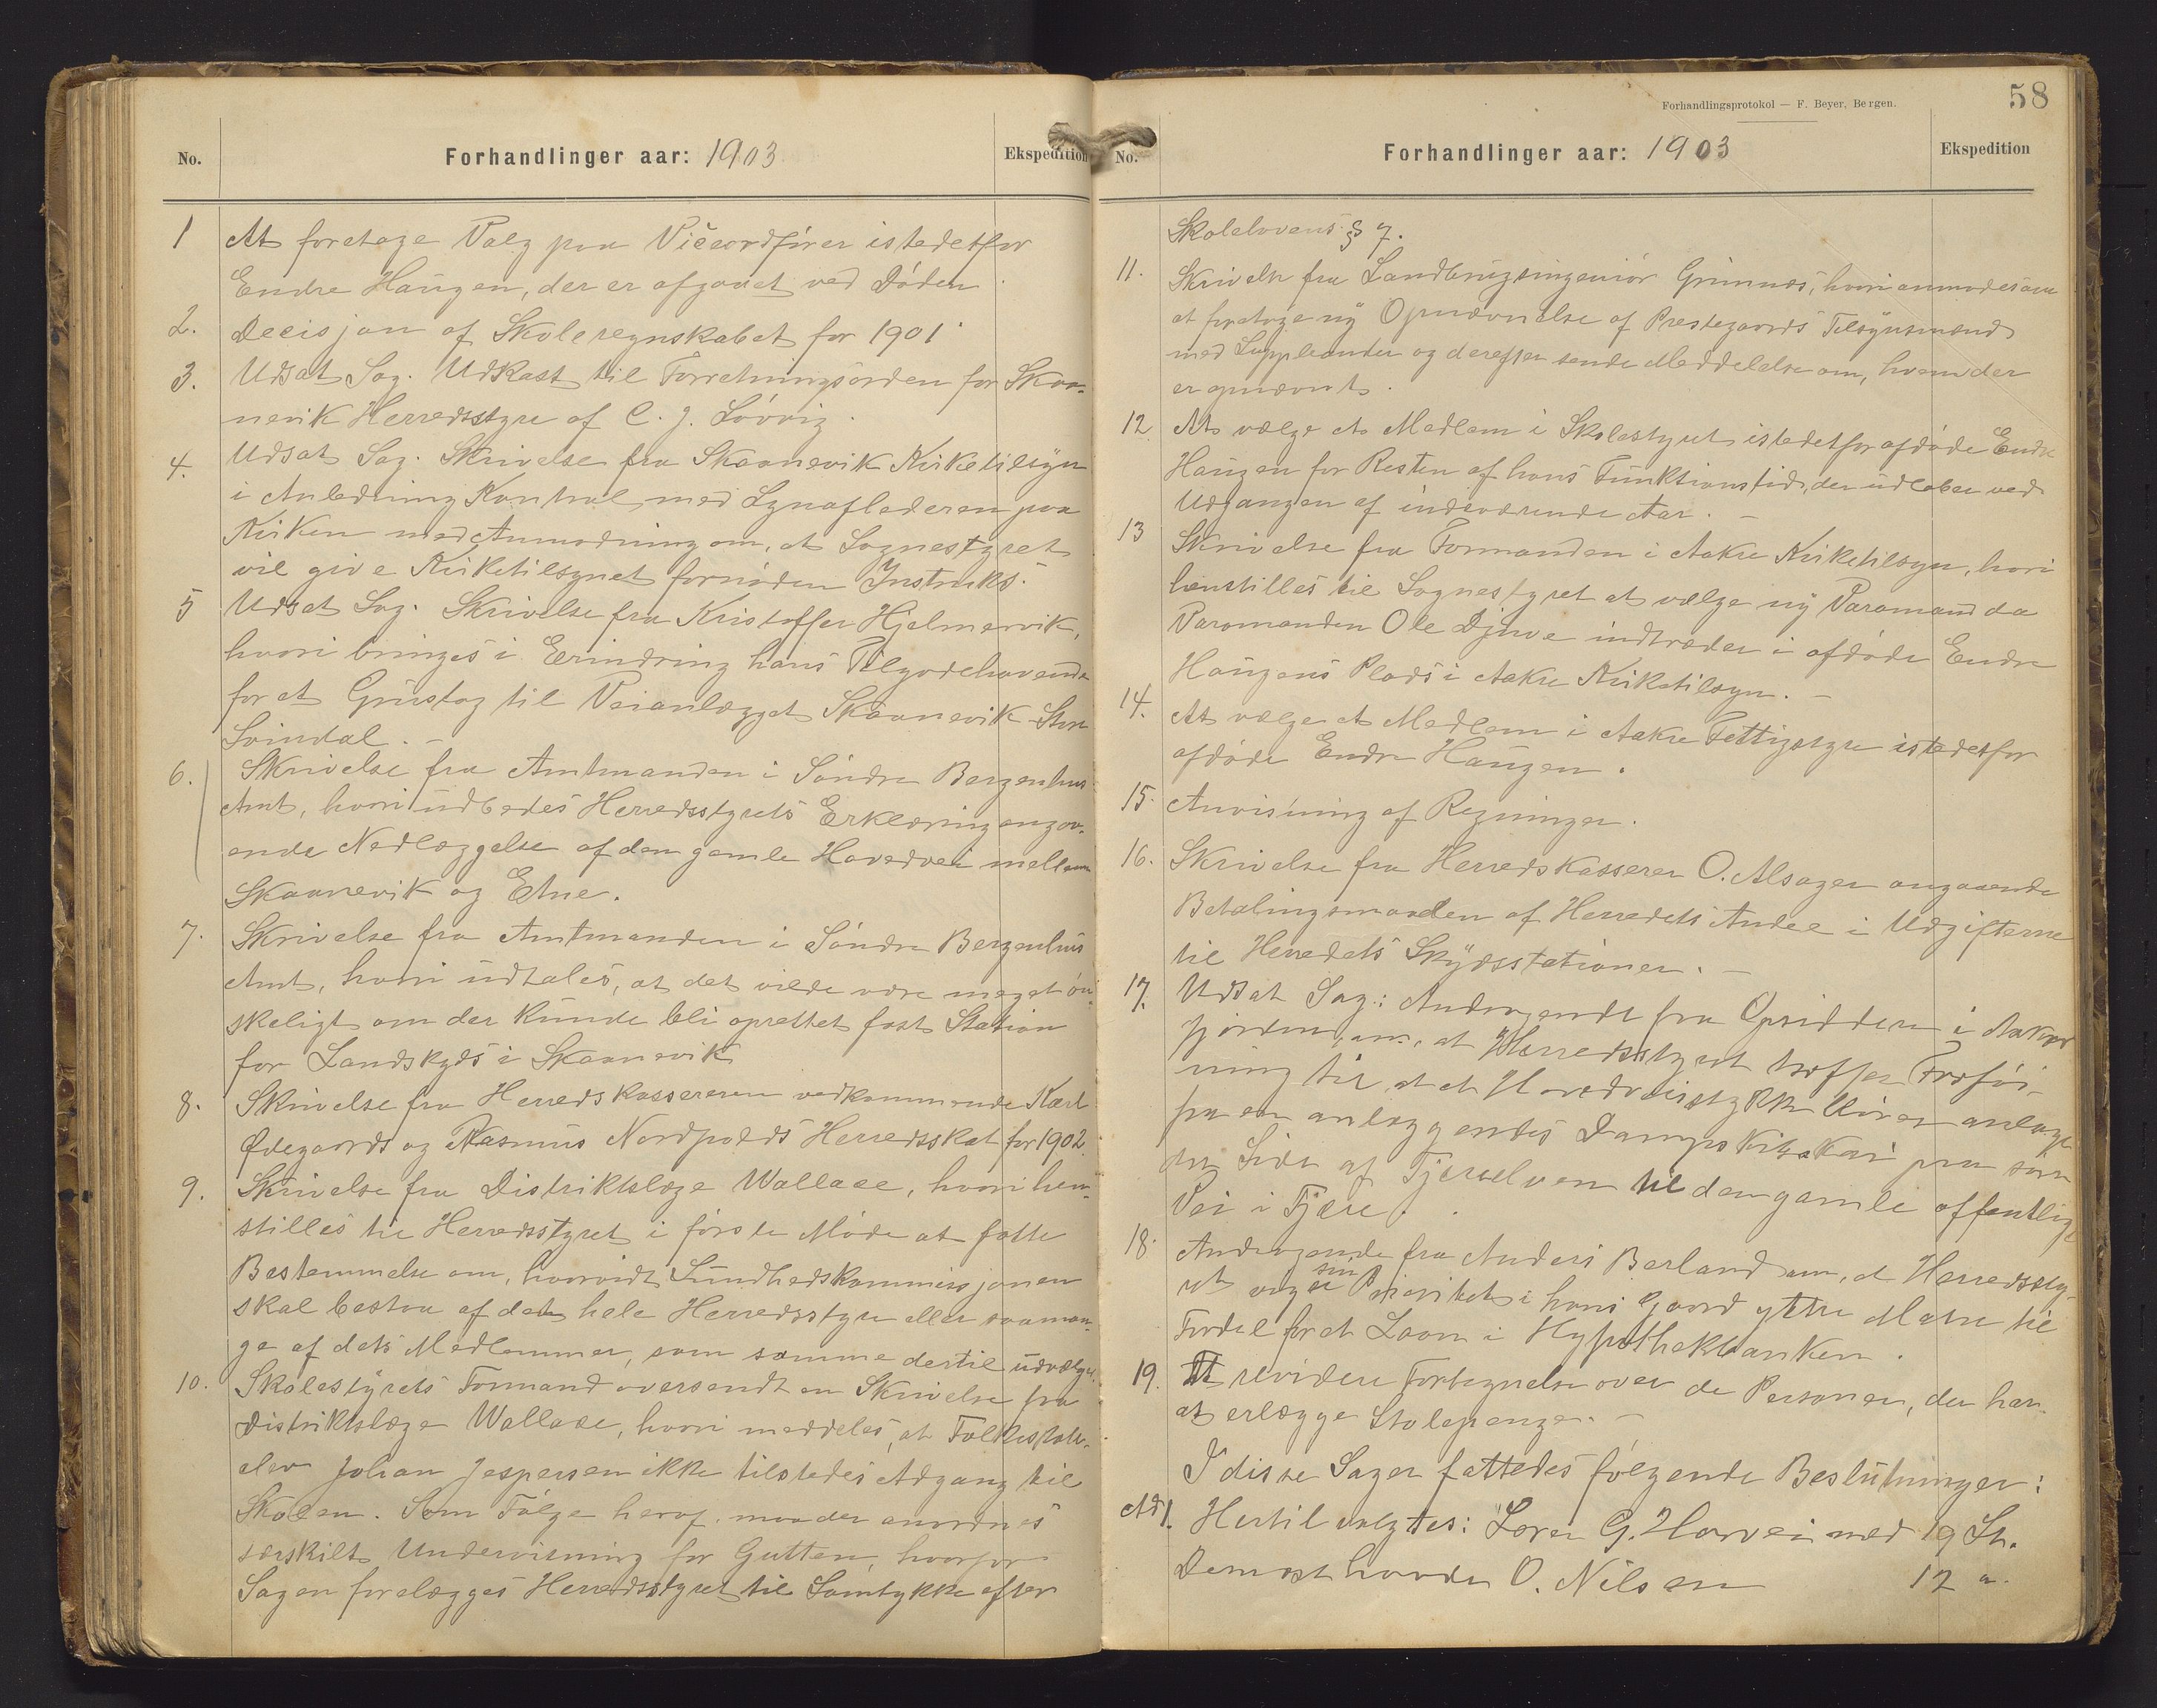 No.
Forhandlinger aar: 1903
Ekspedition
1 At foretage Valg paa Viceordfører istedetfor
Endre Haugen, der er afgaaet ved Døden.
2. Decisjon af Skoleregnskabet for 1901.
3. Udsat Sag. Udkast til Forretningsorden for Skaa-
nevik Herredsstyre af C. J. Løvvig.
4. Udsat Sag. Skrivelse fra Skaanevik Kirketilsyn
i Anledning Kontrol med Lynaflederen paa
Kirken med Anmodning om, at Sognestyret
vil give Kirketilsynet fornøden Instruks.
5 Udsat Sag. Skrivelse fra Kristoffer Hjelmervik,
hvori bringes i Erindring hans Tilgodehavende
for et Grustag til Veianlægget Skaanevik - Store
Svindal. –
6. Skrivelse fra Amtmanden i Søndre Bergenhus
Amt, hvori udbedes Herredsstyrets Erklæring angaa-
ende Nedlæggelse af den gamle Hovedvei mellem
Skaanevik og Etne.
7. Skrivelse fra Amtmanden i Søndre Bergenhus
Amt, hvori udtales, at det vilde være meget øn-
skeligt om der kunde bli oprettet fast Station
for Landskyds i Skaanevik
8. Skrivelse fra Herredskassereren vedkommende Karl
Ødegaards og Rasmus Nordpolds Herredsskat for 1902.
9. Skrivelse fra Distriktslæge Wallace, hvori hen-
stilles til Herredsstyret i første Møde at fatte
Bestemmelse om, hvorvidt Sundhedskommissjonen
skal bestaa af det hele Herredsstyre eller saaman-
ge af dets Medlemmer, som samme dertil udvælger.
10. Skolestyrets Formand oversendt en Skrivelse fra
Distriktslæge Wallace, hvori meddeles, at Folkeskole-
elev Johan Jespersen ikke tilstedes Adgang til
Skolen. Som Følge heraf maa der anordnes
særskilt Undervisning for Gutten, hvorfor
Sagen forelægges Herredsstyret til Samtykke efter
Forhandlingsprotokol — F. Beyer, Bergen.
58
No.
Forhandlinger aar: 1903
Ekspedition
Skolelovens § 7.
11. Skrivelse fra Landbrugsingeniør Grimnes, hvori anmodes om
at foretage ny Opnævnelse af Prestegaards Tilsynsmænd
med Suppleanter og derefter sende Meddelelse om, hvem der
er opnævnt.
12. At vælge et Medlem i Skolestyret istedetfor afdøde Endre
Haugen for Resten af hans Funktionstid, der udløber ved
Udgangen af indeværende Aar. –
13 Skrivelse fra Formanden i Aakre Kirketilsyn, hvori
henstilles til Sognestyret at vælge ny Varamand da
Varamanden Ole Djuve indtræder i afdøde Endre
Haugens Plads i Aakre Kirketilsyn. –
14. At vælge et Medlem i Aakre Fattigstyre istedetfor
afdøde Endre Haugen.
15. Anvisning af Regninger.
16. Skrivelse fra Herredskasserer O. Alsager angaaende
Betalingsmaaden af Herredets Andel i Udgifterne
til Herredets Skydsstationer. –
17. Udsat Sag: Andragende fra Opsiddere i Aakre-
fjorden, om, at Herredsstyret træffer Forføi-
ning til, at et Hovedveistykke bliver anlagt
fra en anlæggendes Dampskibskai paa søn-
dre Side af Fjæreelven til den gamle offentlige
Vei i Fjære.
18. Andragende fra Anders Berland om, at Herredssty-
ret viger sin Prioritet i hans Gaard ytre Matre til
Fordel for et Laan i Hypothekbanken.
19. At revidere Fortegnelse over de Personer, der har
at erlægge Stolepenge. –
I disse Sager fattedes følgende Beslutninger:
Ad 1. Hertil valgtes: Lærer G. Harvei med 19 St.
Dernæst havde O. Nilsen 12 "